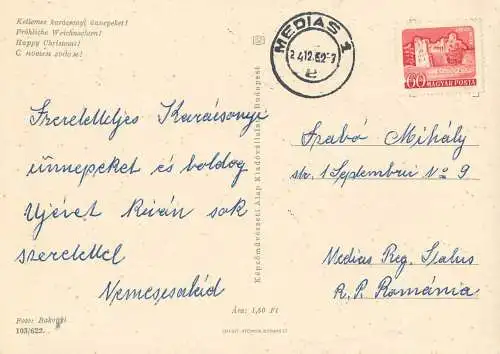 Kellemes karácsonyi ünnepeket!
Fröhliche Weichnachten!
Happy Christmas!
С новым годом!
Szeretetteljes Karácsonyi
ünnepeket és boldog
Ujévet kíván sok
szeretettel
Nemescsalád
Foto: Bakonyi
103/622.
Ára: 1,60 Ft
Képzőművészeti Alap Kiadóvállalata, Budapest
MEDIAS 1
2412.62-7
60
MAGYAR POSTA
Szabó Mihály
str. 1 Septembrii No 9
Medias Reg. Stalin
R. P. Románia